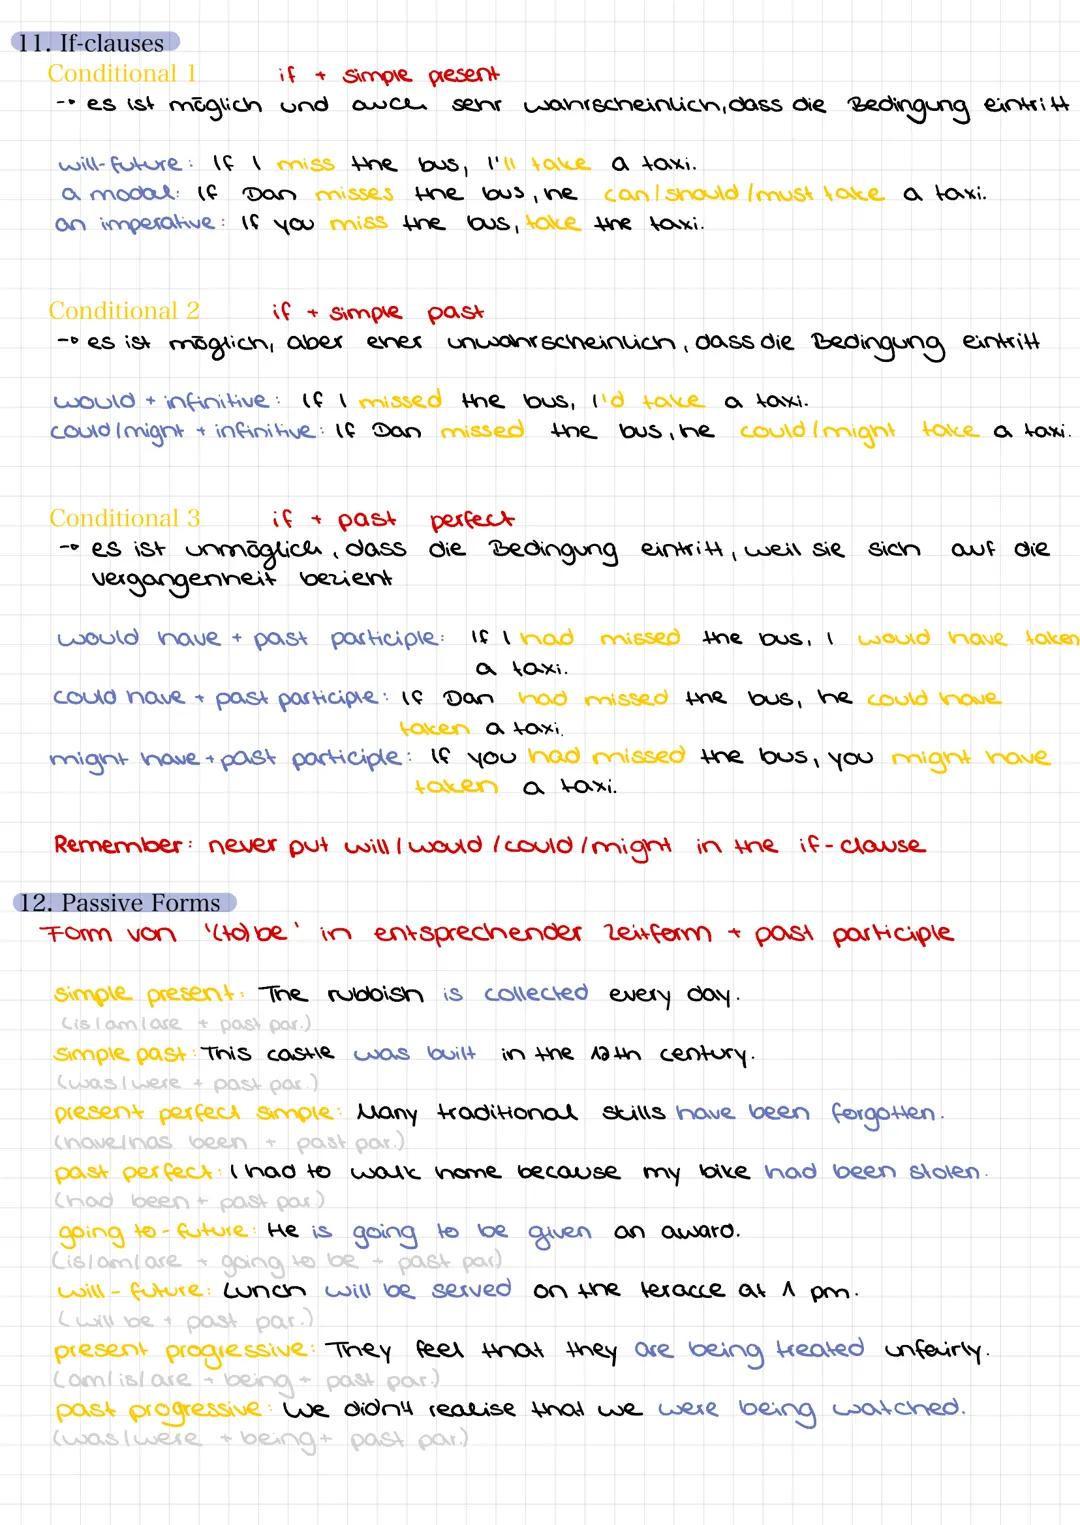 11. If-clauses
Conditional 1 if + simple present
-> es ist möglich und auch sehr wahrscheinlich, dass die Bedingung eintritt
will-future: If I miss the bus, I'll take a taxi.
a modal: If Dan misses the bus, he can/should/must take a taxi.
an imperative: If you miss the bus, take the taxi.
Conditional 2 if + simple past
-> es ist möglich, aber eher unwahrscheinlich, dass die Bedingung eintritt
would + infinitive: If I missed the bus, I'd take a taxi.
could/might + infinitive: If Dan missed the bus, he could/might take a taxi.
Conditional 3 if + past perfect
-> es ist unmöglich, dass die Bedingung eintritt, weil sie sich auf die
Vergangenheit bezieht
would have + past participle: If I had missed the bus, I would have taken
a taxi.
could have + past participle: If Dan had missed the bus, he could have
taken a taxi.
might have + past participle: If you had missed the bus, you might have
taken a taxi.
Remember: never put will/would/could/might in the if-clause
12. Passive Forms
Form von '(to) be' in entsprechender Zeitform + past participle
simple present: The rubbish is collected every day.
(is/am/are + past par.)
simple past: This castle was built in the 12th century.
(was/were + past par.)
present perfect simple: Many traditional skills have been forgotten.
(have/has been + past par.)
past perfect: I had to walk home because my bike had been stolen.
(had been + past par)
going to-future: He is going to be given an award.
(is/am/are + going to be + past par)
will-future: Lunch will be served on the teracce at 1 pm.
(will be + past par.)
present progressive: They feel that they are being treated unfairly.
(am/is/are + being + past par.)
past progressive: We didn't realise that we were being watched.
(was/were + being + past par.)